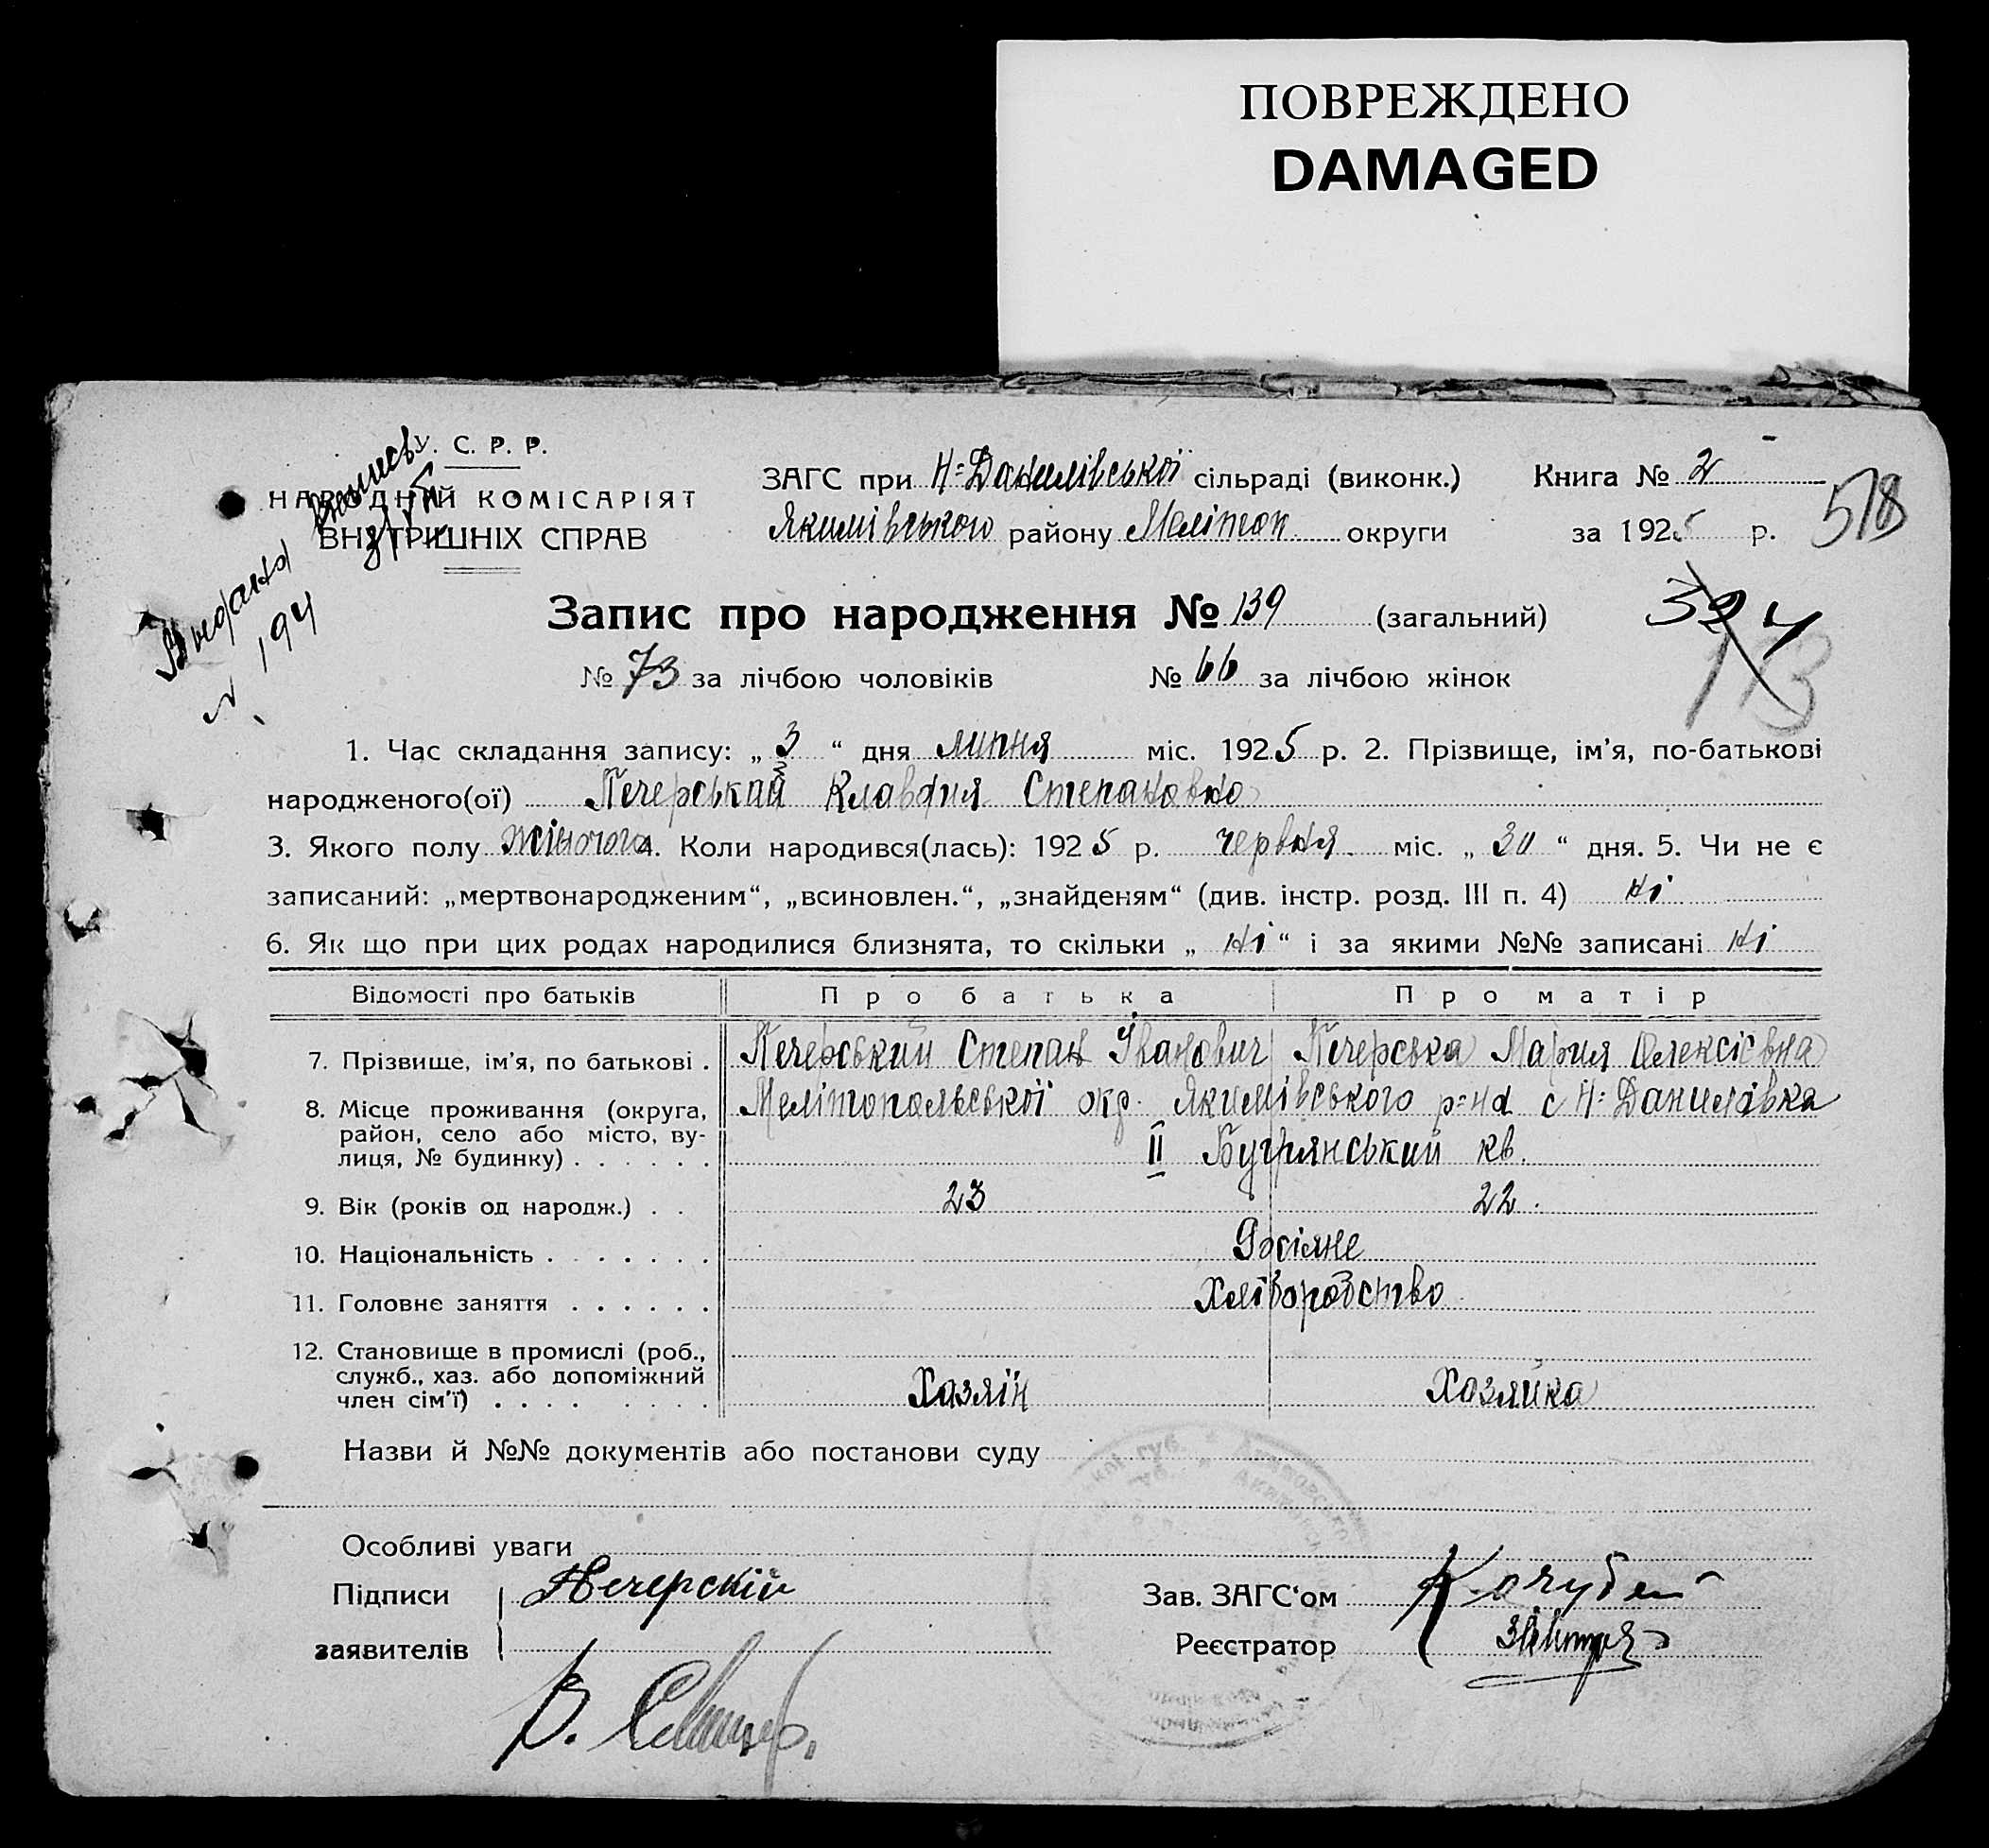 ПОВРЕЖДЕНО
DAMAGED
У. С. Р. Р.
НАРОДНІЙ КОМІСАРІЯТ
ВНУТРІШНІХ СПРАВ
Выдана
194
ЗАГС при Н-Данилівської сільраді (виконк.)
Якимівського району Мелітоп. округи
Книга № 2
за 1925 р.
518
Запис про народження № 139 (загальний)
324
113
№ 73 за лічбою чоловіків № 66 за лічбою жінок
1. Час складання запису: „ 3 “ дня липня міс. 1925 р. 2. Прізвище, ім'я, по-батькові
народженого(ої) Печерський Клавдия Степановна
3. Якого полу жіночого 4. Коли народився(лась): 1925 р. червня міс. „ 30 “ дня. 5. Чи не є
записаний: „мертвонародженим“, „всиновлен.“, „знайденям“ (див. інстр. розд. III п. 4) ні
6. Як що при цих родах народилися близнята, то скільки „ ні “ і за якими №№ записані ні
Відомості про батьків Про батька Про матір
7. Прізвище, ім'я, по батькові . Печерський Степан Іванович Печерська Мария Олексієвна
8. Місце проживання (округа, район, село або місто, вулиця, № будинку) . . . . . . Мелітопольської окр. Якимівського р-на с Н-Данилівка
II Бугрянський кв.
9. Вік (років од народж.) . . 23 22.
10. Національність . . . . . . . Росіяне
11. Головне заняття . . . . . . Хліборобство
12. Становище в промислі (роб., служб., хаз. або допоміжний член сім'ї) . . . . . . . . Хазяїн Хазяйка
Назви й №№ документів або постанови суду
Особливі уваги
Підписи заявителів Печерскій
Зав. ЗАГС‘ом Кочубей
Реєстратор